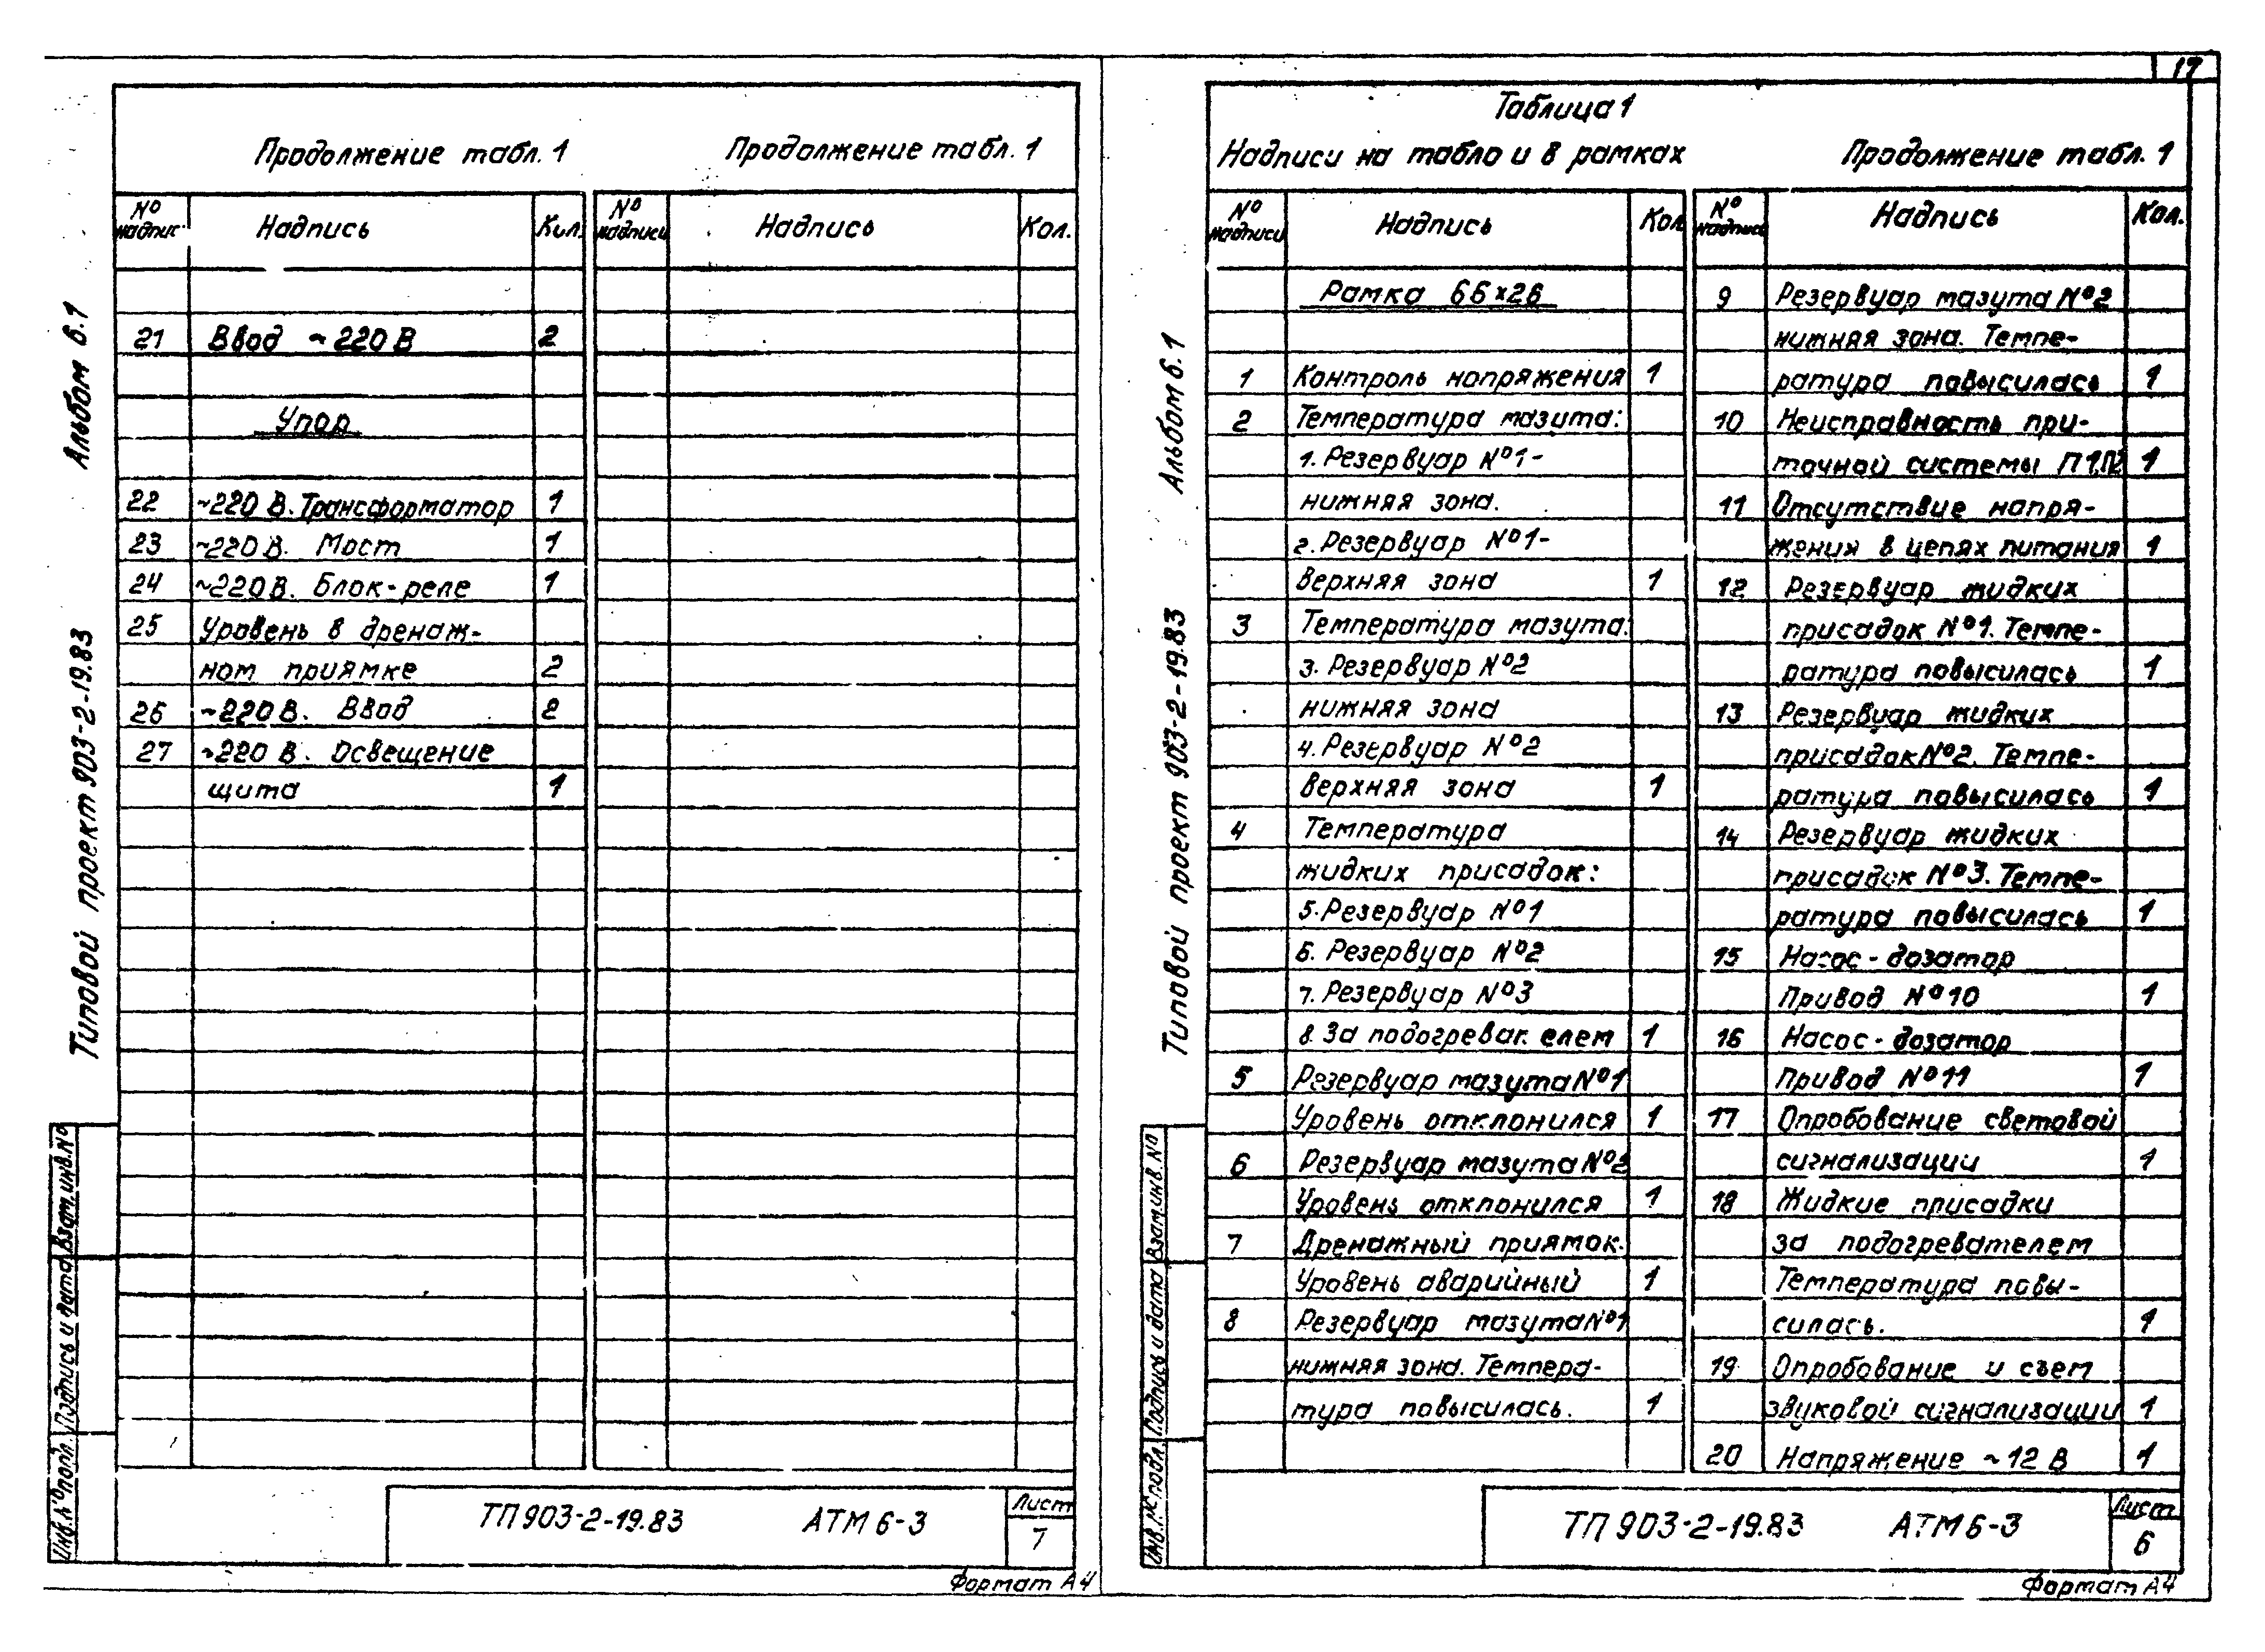 17
Продолжение табл. 1
Продолжение табл. 1
№ надпис. Надпись Кол.
№ надписи Надпись Кол.
21 Ввод ~ 220 В 2
Упор
22 ~220 В. Трансформатор 1
23 ~220 В. Мост 1
24 ~220 В. Блок-реле 1
25 Уровень в дренаж-
ном приямке 2
26 ~220 В. Ввод 2
27 ~220 В. Освещение
щита 1
Альбом 6.1
Типовой проект 903-2-19.83
Взам. инв. №
Подпись и дата
Инв. № подл.
ТП 903-2-19.83 АТМ 6-3
Лист
7
Формат А4
Таблица 1
Надписи на табло и в рамках
Продолжение табл. 1
№ надписи Надпись Кол
Рамка 66×26
1 Контроль напряжения 1
2 Температура мазута:
1. Резервуар №1-
нижняя зона.
2. Резервуар №1-
верхняя зона 1
3 Температура мазута:
3. Резервуар №2
нижняя зона
4. Резервуар №2
верхняя зона 1
4 Температура
жидких присадок:
5. Резервуар №1
6. Резервуар №2
7. Резервуар №3
8. За подогревателем 1
5 Резервуар мазута №1
Уровень отклонился 1
6 Резервуар мазута №2
Уровень отклонился 1
7 Дренажный приямок.
Уровень аварийный 1
8 Резервуар мазута №1
нижняя зона. Темпера-
тура повысилась. 1
№ надписи Надпись Кол.
9 Резервуар мазута №2
нижняя зона. Темпе-
ратура повысилась 1
10 Неисправность при-
точной системы П1,П2 1
11 Отсутствие напря-
жения в цепях питания 1
12 Резервуар жидких
присадок №1. Темпе-
ратура повысилась 1
13 Резервуар жидких
присадок №2. Темпе-
ратура повысилась 1
14 Резервуар жидких
присадок №3. Темпе-
ратура повысилась 1
15 Насос-дозатор
Привод №10 1
16 Насос-дозатор
Привод №11 1
17 Опробование световой
сигнализации 1
18 Жидкие присадки
за подогревателем
Температура повы-
силась. 1
19 Опробование и съем
звуковой сигнализации 1
20 Напряжение ~12 В 1
Альбом 6.1
Типовой проект 903-2-19.83
Взам. инв. №
Подпись и дата
Инв. № подл.
ТП 903-2-19.83 АТМ 6-3
Лист
6
Формат А4